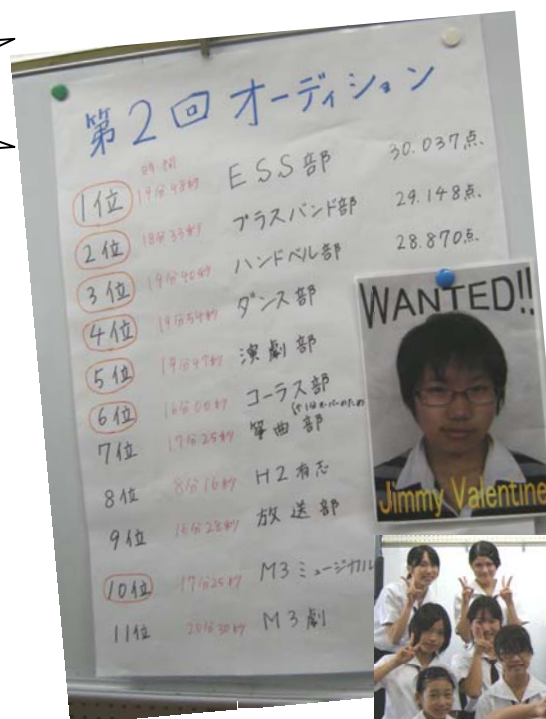 第2回 オーディション
時間
1位 19分48秒 ESS部 30.037点
2位 18分33秒 ブラスバンド部 29.148点
3位 19分40秒 ハンドベル部 28.870点
4位 19分54秒 ダンス部
5位 19分47秒 演劇部
6位 16分00秒 コーラス部
7位 17分25秒 箏曲部
8位 8分16秒 H2有志
9位 16分28秒 放送部
10位 17分25秒 M3ミュージカル
11位 20分30秒 M3劇
WANTED!!
Jimmy Valentine